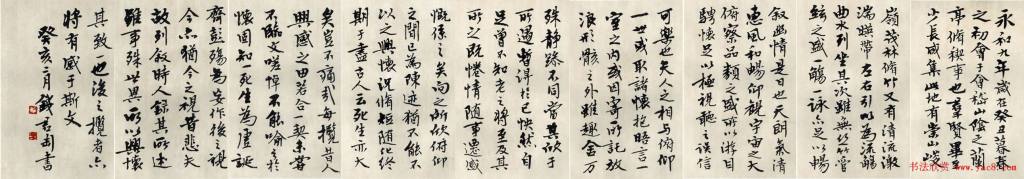 永和九年歲在癸丑暮春
之初會于會稽山陰之蘭
亭脩稧事也羣賢畢至
少長咸集此地有崇山峻
嶺茂林脩竹又有清流激
湍暎帶左右引以為流觴
曲水列坐其次雖無絲竹管
絃之盛一觴一詠亦足以暢
叙幽情是日也天朗氣清
惠風和暢仰觀宇宙之大
俯察品類之盛所以遊目
騁懷足以極視聽之娛信
可樂也夫人之相與俯仰
一世或取諸懷抱晤言一
室之內或因寄所託放
浪形骸之外雖趣舍万
殊靜躁不同當其欣于
所遇暫得於己怏然自
足曾不知老之將至及其
所之既惓情隨事遷感
慨係之矣向之所欣俯仰
之間已為陳迹猶不能不
以之興懷況脩短隨化終
期于盡古人云死生亦大
矣豈不痛哉每攬昔人
興感之由若合一契未嘗
不臨文嗟悼不能喻於
懷固知一死生為虛誕
齊彭殤為妄作後之視
今亦猶今之視昔悲夫
故列叙時人錄其所述
雖事殊世異所以興懷
其致一也後之攬者亦
將有感于斯文
癸亥二月錢君匋書
书法欣赏 www.yac8.com